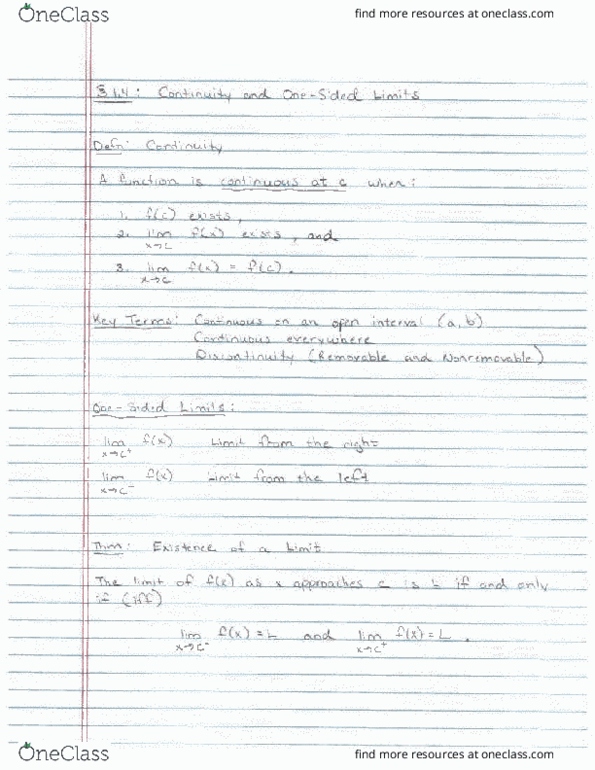 OneClass
find more resources at oneclass.com
§1.4: Continuity and One-Sided Limits
Defn: Continuity
A function is continuous at c when:
1. f(c) exists,
2. lim x→c f(x) exists, and
3. lim x→c f(x) = f(c).
Key Terms: Continuous on an open interval (a, b)
Continuous everywhere
Discontinuity (Removable and Nonremovable)
One-Sided Limits:
lim x→c⁺ f(x) Limit from the right
lim x→c⁻ f(x) Limit from the left
Thm: Existence of a Limit
The limit of f(x) as x approaches c is L if and only
if (iff)
lim x→c⁻ f(x) = L and lim x→c⁺ f(x) = L.
OneClass
find more resources at oneclass.com